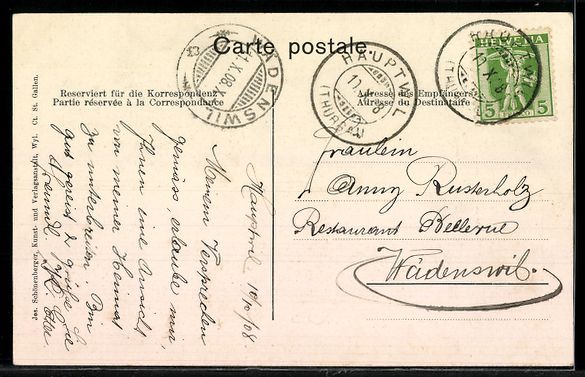 Carte postale.
Reserviert für die Korrespondenz
Partie réservée à la Correspondance
Adresse des Empfängers
Adresse du Destinataire
HELVETIA
5 5
WÄDENSWIL
11.X.08
HAUPTWIL
(THURGAU)
HAUPTWIL
(THURGAU)
Jos. Schönenberger, Kunst- und Verlagsanstalt, Wyl, Ct. St. Gallen.
Hauptwil 10/10/08
Meinem Versprechen
gemäss erlaube mir,
Ihnen eine Ansicht
von meiner Heimat
zu unterbreiten. Bin
gut gereist & grüsse Sie
freundl.
Fräulein
Anny Rusterholz
Restaurant Bellevue
Wädenswil.